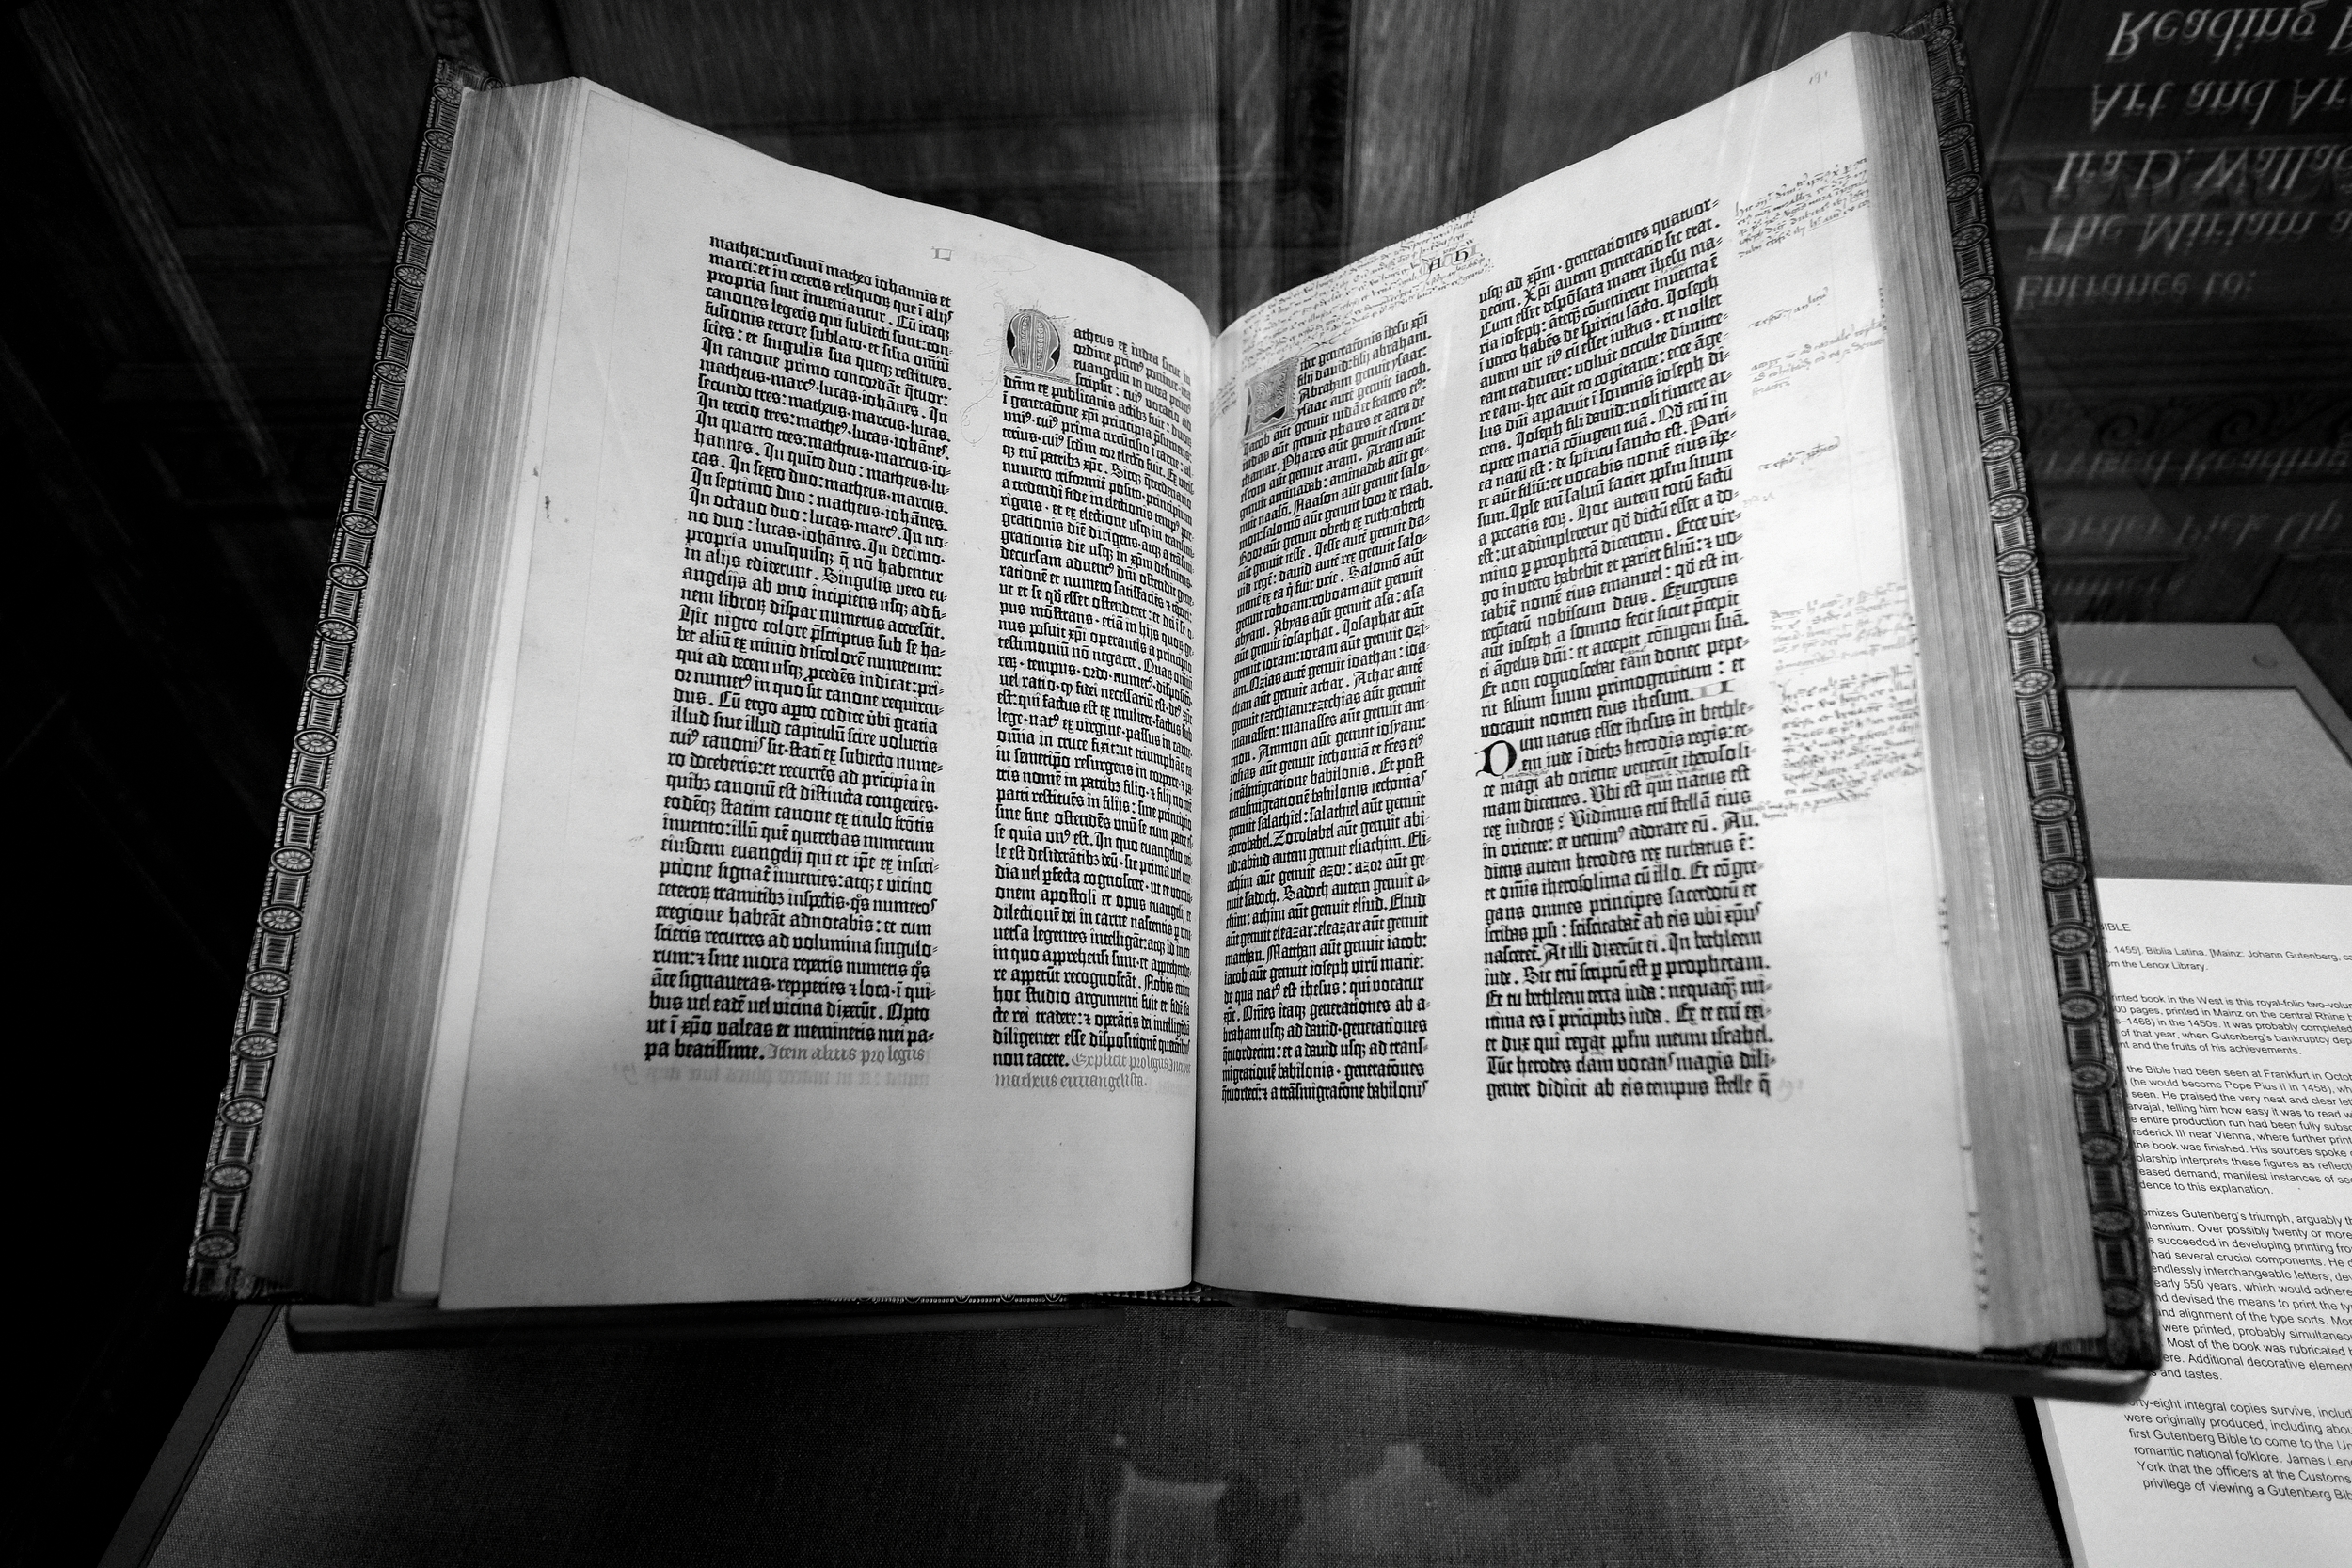 L
mathei: rursum ī matheo iohannis et
marci: et in ceteris reliquoꝝ que ī alijs
propria sunt inueniantur. Cū itaqꝫ
canones legeris qui subiecti sunt: con-
fusionis errore sublato · et silia omniū
scies: et singulis sua queqꝫ restitues.
In canone primo concordāt q̄tuor:
matheus · marcꝰ · lucas · iohānes. In
secundo tres: matheus · marcus · lucas.
In tercio tres: matheꝰ · lucas · iohānes.
In quarto tres: matheus · marcus · io-
hannes. In quīto duo: matheus · lu-
cas. In sexto duo: matheus · marcus.
In septimo duo: matheus · iohānes.
In octauo duo: lucas · marcꝰ. In no-
no duo: lucas · iohānes. In decimo ·
propria vnusquisqꝫ q̄ nō habentur
in alijs ediderunt. Singulis vero eu-
angelijs ab vno incipiens usqꝫ ad fi-
nem libroꝝ dispar numerus accrescit.
Hic nigro colore p̄scriptus sub se ha-
bet aliū ex minio discolorē numerum:
qui ad decem usqꝫ ꝓcedēs indicat: pri-
or numerꝰ in quo sit canone requiren-
dus. Cū ergo aꝑto codice ūbi gratia
illud siue illud capitulū scire volueris
cuiꝰ canonis sit · statī ex subiecto nume-
ro doceberis: et recurrēs ad pricipia in
quibꝫ canonū est distincta congeries ·
eodēqꝫ statim canone ex titulo frōtis
inuento: illū quē querebas numerum
eiusdem euangelij qui et ip̄e ex inscri-
ptione signat᷑ inuenies: atqꝫ e vicino
ceteroꝝ tramitibꝫ inspectis · q̄s numeros
eregione habeāt adnotabis: et cum
scieris recurres ad volumina singulo-
rum: ⁊ sine mora reꝑtis numeris q̄s
āte signaueras · repperies ⁊ loca · ī qui-
bus uel eadē uel vicina dixerūt. Opto
ut ī xp̄o valeas et memineris mei pa-
pa beatissime. Item alius prologus
Matheus ex iudea sicut in
ordine primꝰ ponitur · ita
euangeliū in iudea primꝰ
scripsit: cuiꝰ vocatio ad
dūm ex publicanis actibꝫ fuit: duorū
ī generatōne xp̄i principia p̄sumens:
vniꝰ · cuiꝰ prima circūcisio ī carne: al-
terius · cuiꝰ scdm cor electio fuit. Ex utris-
qꝫ em̄ patribꝫ xp̄c. Sicqꝫ q̄terdenario
numero triformit᷑ posito · principium
a credendi fide in electionis tempꝰ por-
rigens · et ex electione usqꝫ in transmi-
grationis diē dirigens · atqꝫ a trāsmi-
grationis die usqꝫ in xp̄m definiens ·
decursam aduentꝰ dn̄i ostendit gene-
rationē
ut et se qd̄ esset ostenderet:
pus mōstrans · etiā in hijs quoꝝ ge-
nus posuit xp̄i operantis a principio
testimoniū nō negaret.
reꝝ · tempus · ordo · numerꝰ · dispositio ·
uel ratio · qꝫ fidei necessariū est · deꝰ xp̄c
est: qui factus est ex muliere · factus sub
lege · natꝰ ex virgine · passus in carne ·
omīa in cruce fixit: ut triumphās ea
in semetip̄o resurgens in corpore · ⁊ pa-
tris nomē in patribꝫ filio · ⁊ filij nomē
patri restituēs in filijs: sine principio
sine fine ostendēs vnū se cum patre esse
se quia vnꝰ est. In quo euangelio uti-
le est desiderātibꝫ deū · sic prima uel me-
dia uel ꝑfecta cognoscere · ut et vocati-
onem apostoli et opus euangelij et
dilectionē dei in carne nascentis ꝑ uni-
uersa legentes intelligāt: atqꝫ id in eo
in quo apprehensi sunt · et apprehende-
re appetūt recognoscāt. Nobis enim
hoc studio argumenti fuit et fidē fa-
cte rei tradere: ⁊ operātis dei intelligēdā
diligenter esse dispositionē querētibus
non tacere. Explicit prologus Incipit
matheus euuangelista.
Liber generationis ihesu xp̄i
filij dauid: filij abraham.
Abraham genuit ysaac:
ysaac autē genuit iacob.
Jacob aūt genuit iudā et fratres eiꝰ:
iudas aūt genuit phares et zara de
thamar. Phares aūt genuit esrom:
esrom aūt genuit aram. Aram aūt
genuit aminadab: aminadab aūt ge-
nuit naasō. Naason aūt genuit salo-
mon: salomō aūt genuit booz de raab.
Booz aūt genuit obeth ex ruth: obeth
aūt genuit iesse. Jesse aūt genuit da-
uid regē: dauid autē rex genuit salo-
monē ex ea q̄ fuit vrie. Salomō aūt
genuit roboam: roboam aūt genuit
abyam. Abyas aūt genuit asa: asa
aūt genuit iosaphat. Josaphat aūt
genuit ioram: ioram aūt genuit ozi-
am. Ozias autē genuit ioathan: ioa-
than aūt genuit achar. Achar autē
genuit ezechiam: ezechias aūt genuit
manassen: manasses aūt genuit am-
mon. Ammon aūt genuit iosyam:
iosias aūt genuit iechoniā et fr̄es eiꝰ
ī trāsmigratione babilonis. Et post
transmigrationē babilonis iechonias
genuit salathiel: salathiel aūt genuit
zorobabel. Zorobabel aūt genuit abi-
ud: abiud autem genuit eliachim. Eli-
achim aūt genuit azor: azor aūt ge-
nuit sadoch. Sadoch autem genuit a-
chim: achim aūt genuit eliud. Eliud
aūt genuit eleazar: eleazar aūt genuit
matthan. Matthan aūt genuit iacob:
iacob aūt genuit ioseph virū marie:
de qua natꝰ est ihesus: qui vocatur
xp̄c. Om̄es itaqꝫ generationes ab a-
braham usqꝫ ad dauid · generationes
q̄tuordecim: et a dauid usqꝫ ad trans-
migrationē babilonis · generatōnes
q̄tuordecī: ⁊ a trāsmigratōne babilonis
usqꝫ ad xp̄m · generationes quatuor-
decim. Xp̄i autem generatio sic erat.
Cum esset despōsata mater ihesu ma-
ria ioseph: āteqꝫ cōuenirent inuenta ē
ī vtero habēs de spiritu sācto. Joseph
autem vir eiꝰ cū esset iustus · et nollet
eam traducere: voluit occulte dimitte-
re eam · hec aūt eo cogitante: ecce āge-
lus dn̄i apparuit ī somnis ioseph di-
cens. Joseph fili dauid: noli timere ac-
cipere mariā cōiugem tuā. Qd̄ em̄ in
ea natū est: de spiritu sancto est. Pari-
et aūt filiū: et vocabis nomē eius ihe-
sum. Ipse em̄ saluū faciet pp̄lm suum
a peccatis eoꝝ. Hoc autem totū factū
est: ut adimpleretur qd̄ dictū est a do-
mino ꝑ prophetā dicentem. Ecce vir-
go in vtero habebit et pariet filiū: ⁊ vo-
cabit᷑ nomē eius emanuel: qd̄ est in-
terp̄tatū nobiscum deus. Exurgens
aūt ioseph a somno fecit sicut p̄cepit
ei āgelus dn̄i: et accepit cōiugem suā.
Et non cognoscebat eām donec pepe-
rit filium suum primogenitum: et
vocauit nomen eius ihesum. II
Dum natus esset ihesus in bethle-
em iude ī diebꝫ herodis regis: ec-
ce magi ab oriente venerūt iherosoli-
mam dicentes. Vbi est qui natus est
rex iudeoꝝ: Vidimus em̄ stellā eius
in oriente: et venimꝰ adorare eū. Au-
diens autem herodes rex turbatus ē:
et om̄is iherosolima cū illo. Et cōgre-
gans omnes principes sacerdotū et
scribas pp̄li: sciscitabat᷑ ab eis vbi xp̄us
nasceret᷑. At illi dixerūt ei. In bethleem
iude. Sic em̄ scriptū est ꝑ prophetam.
Et tu bethleem terra iuda: nequaqꝫ mi-
nima es ī pricipibꝫ iuda. Ex te em̄ exi-
et dux qui regat pp̄lm meum israhel.
Tūc herodes clam vocatis magis dili-
genter didicit ab eis tempus stelle q̄
Reading
Art and Ar
Ira D. Wallac
The Miriam a
Entrance to:
BIBLE
1455]. Biblia Latina. [Mainz: Johann Gutenberg, ca
om the Lenox Library.
inted book in the West is this royal-folio two-volu
00 pages, printed in Mainz on the central Rhine b
–1468) in the 1450s. It was probably completed
of that year, when Gutenberg's bankruptcy dep
nt and the fruits of his achievements.
the Bible had been seen at Frankfurt in Octob
(he would become Pope Pius II in 1458), wh
seen. He praised the very neat and clear let
arvajal, telling him how easy it was to read w
e entire production run had been fully subsc
rederick III near Vienna, where further print
the book was finished. His sources spoke o
olarship interprets these figures as reflecti
eased demand; manifest instances of se
dence to this explanation.
omizes Gutenberg's triumph, arguably th
llennium. Over possibly twenty or more
e succeeded in developing printing fro
had several crucial components. He d
endlessly interchangeable letters; dev
early 550 years, which would adhere
nd devised the means to print the ty
and alignment of the type sorts. Mor
were printed, probably simultaneou
Most of the book was rubricated h
ere. Additional decorative element
s and tastes.
orty-eight integral copies survive, includ
were originally produced, including abou
first Gutenberg Bible to come to the Un
romantic national folklore. James Len
York that the officers at the Customs
privilege of viewing a Gutenberg Bib